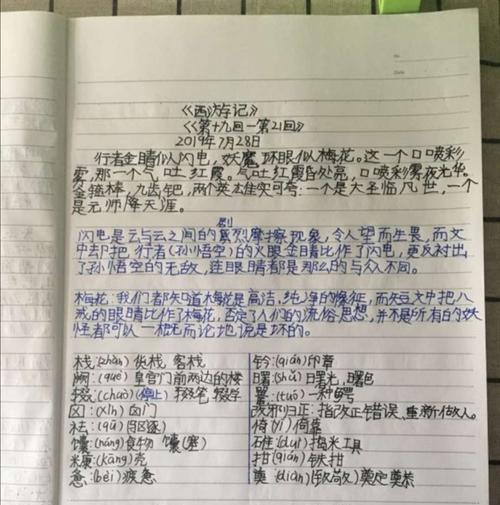 《西游记》
《第十九回一第21回》
2019年7月28日
行者金睛似闪电，妖魔环眼似梅花。这一个口喷彩
雾，那一个气吐红霞。气吐红霞昏处亮，口喷彩雾夜光华。
金箍棒，九齿钯，两个英雄实可夸：一个是大圣临凡世，一个
是元帅降天涯。
剧
闪电是云与云之间的剧烈摩擦现象，令人望而生畏，而文
中却把行者(孙悟空)的火眼金睛比作了闪电，更反衬出
了孙悟空的无敌，连眼睛都是那么的与众不同。
梅花，我们都知道梅花是高洁，纯净的象征，而短文中把八
戒的眼睛比作了梅花，否定了人们的流俗思想，并不是所有的妖
怪都可以一概而论地说是坏的。
栈:(zhàn) 货栈 客栈
阙:(què) 皇宫门前两边的楼
辍:(chuò)(停止) 辍笔 辍学
囟:(xìn) 囟门
祛:(qū)
馕:(náng)食物 馕(塞)
糠:(kāng)壳
惫:(bèi)疲惫
钤:(qián)印章
曙:(shǔ)曙光,曙色
鼍:(tuó)一种鳄
改邪归正:指改正错误、重新做人。
倚(yǐ)倚靠
碓:(duì)捣米工具
拑(qián)
奠:(diàn)(致敬) 奠定 奠基